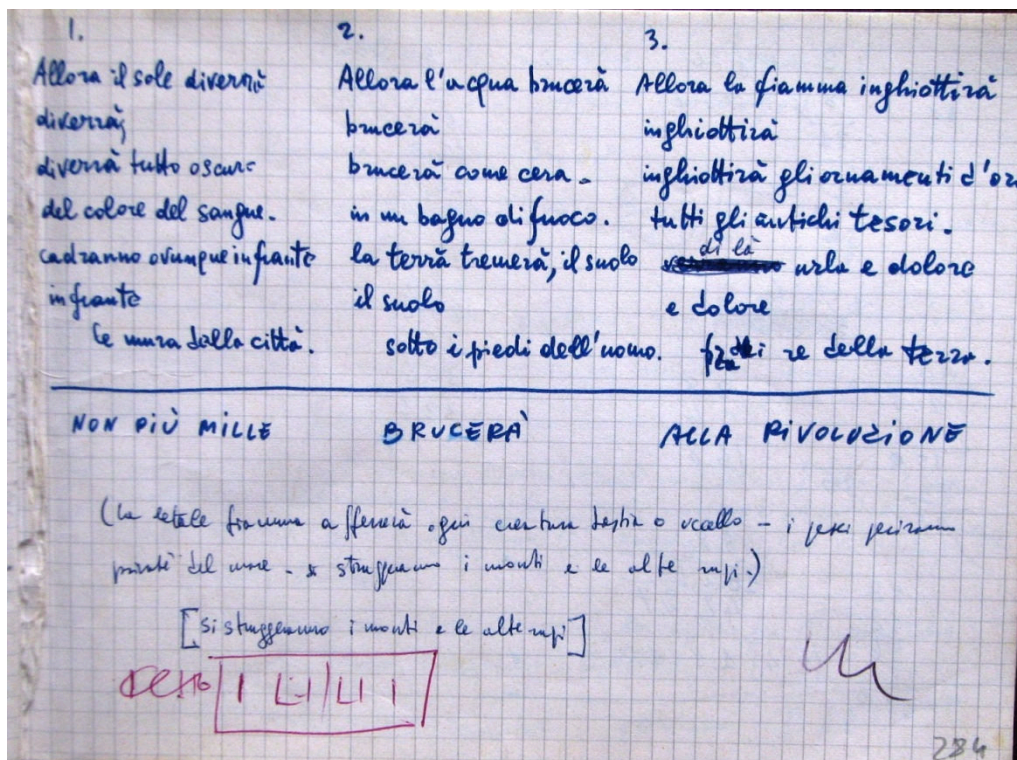 1.
Allora il sole diverrà
diverrà,
diverrà tutto oscuro
del colore del sangue.
cadranno ovunque infrante
infrante
le mura della città.
2.
Allora l'acqua brucerà
brucerà
brucerà come cera.
in un bagno di fuoco.
la terra tremerà, il suolo
il suolo
sotto i piedi dell'uomo.
3.
Allora la fiamma inghiottirà
inghiottirà
inghiottirà gli ornamenti d'oro
tutti gli antichi tesori.
di là urla e dolore
e dolore
fra i re della terra.
NON PIÙ MILLE
BRUCERÀ
ALLA RIVOLUZIONE
(la letale fiamma afferrerà ogni creatura bestia o uccello - i pesci periranno
privati del mare - si struggeranno i monti e le alte rupi.)
[si struggeranno i monti e le alte rupi]
284